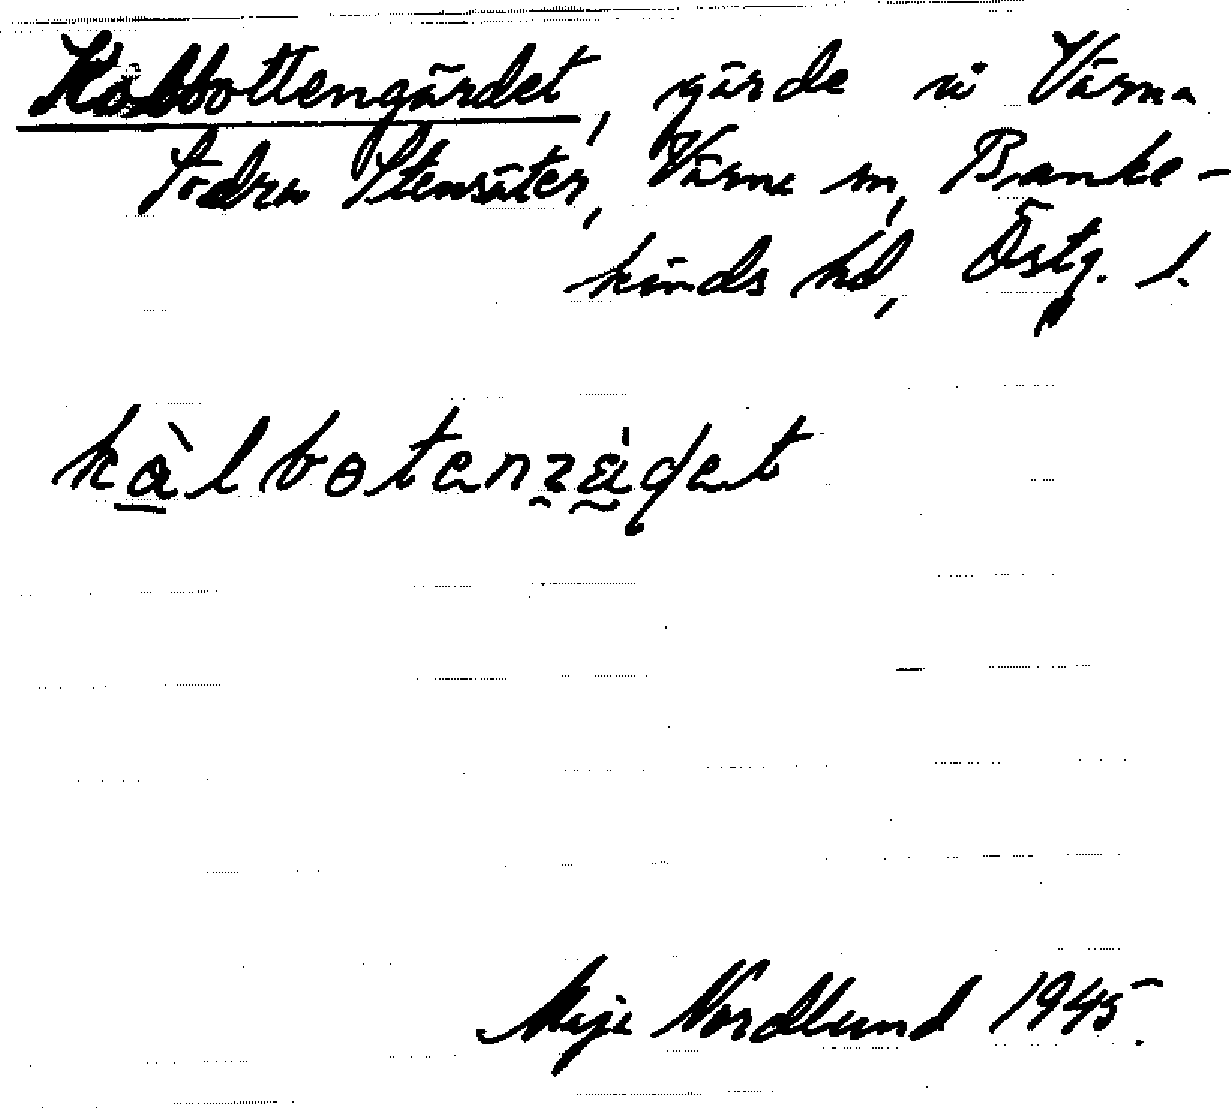 Kolbottengärdet, gärde i Värna
Södra Stensäter, Värna sn, Banke-
kinds hd, Östg. l.
kàlbotenzädet
Maja Nordlund 1945.